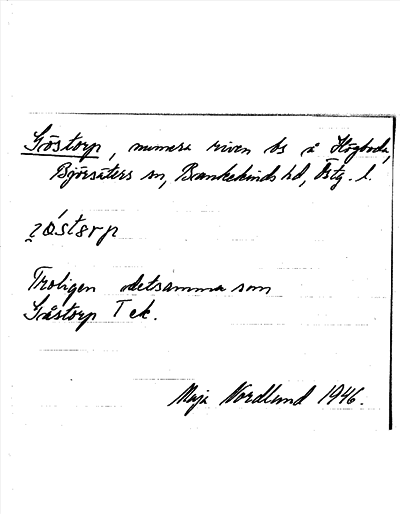 Göstorp, numera riven bs å Högboda,
Björsäters sn, Bankekinds hd, Östg. l.
Troligen detsamma som
Gåstorp T ek.
Maja Nordlund 1946.